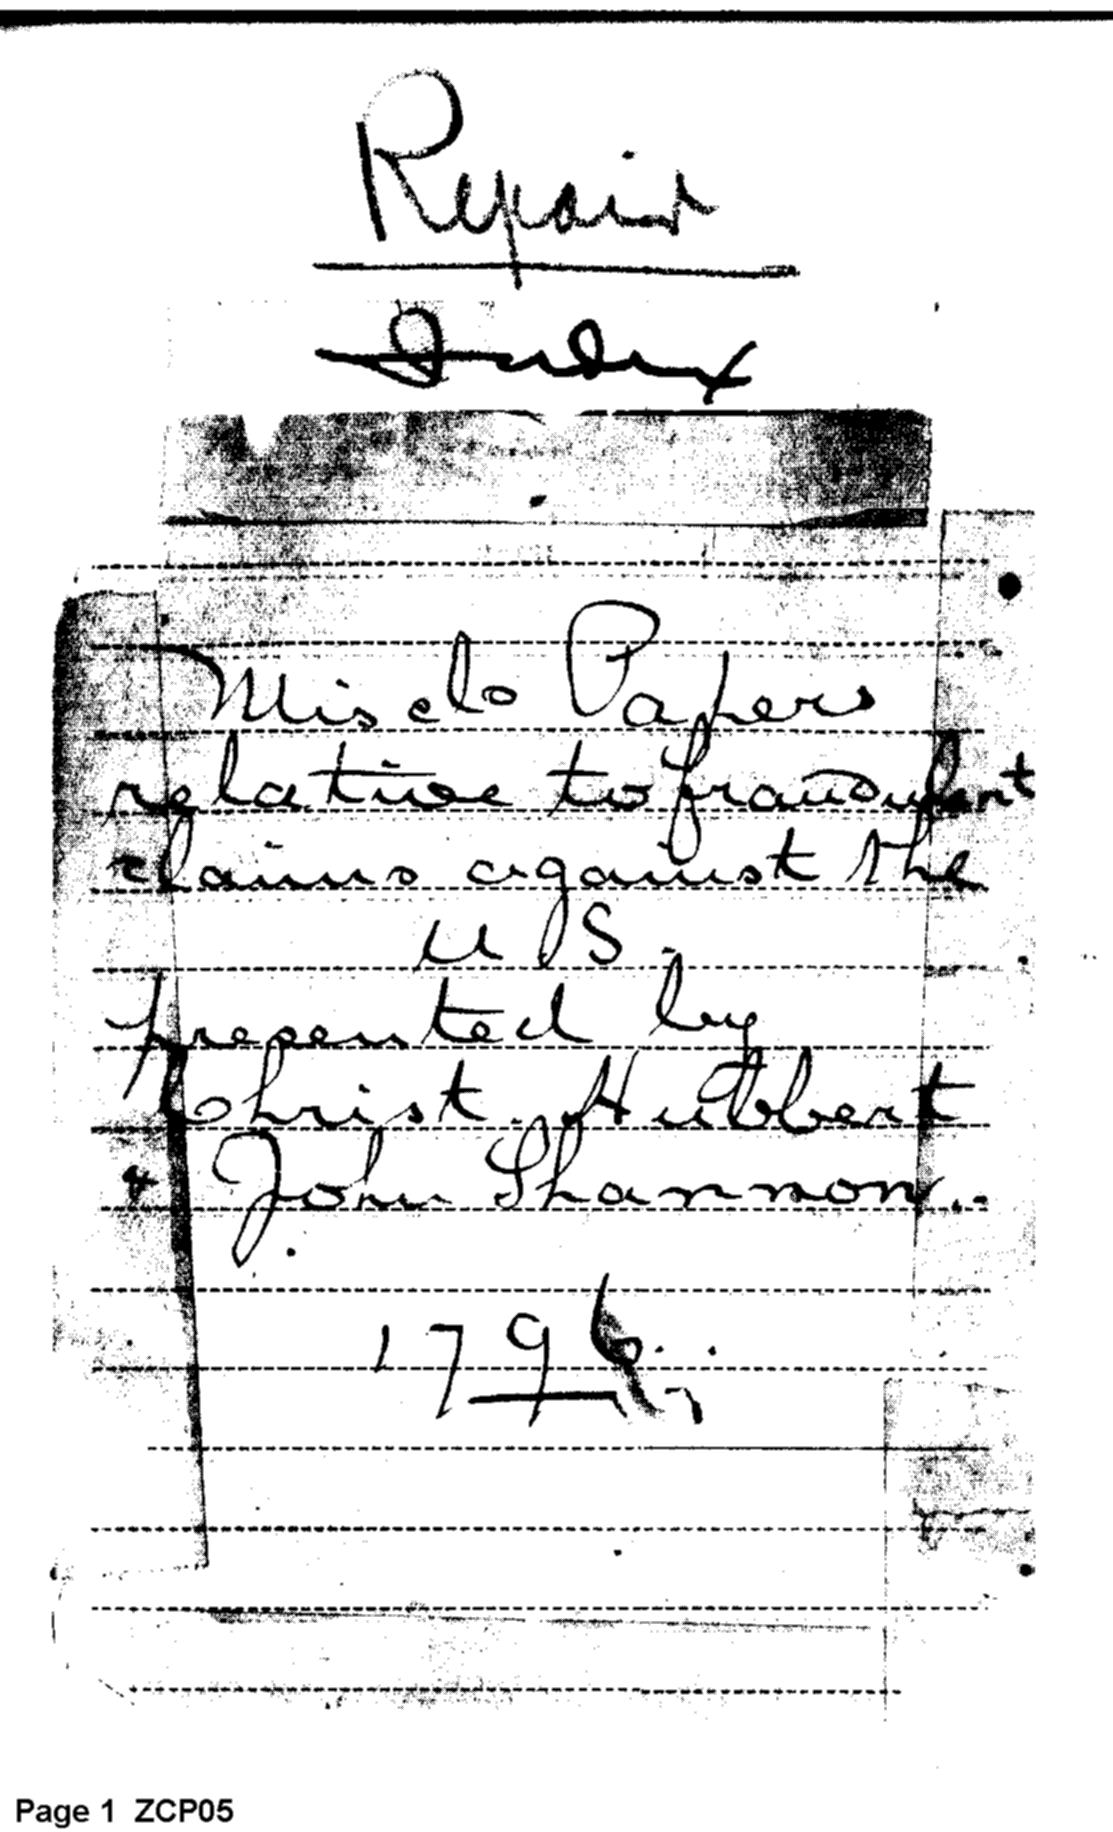 Repair
Index
Miscls Papers
relative to fraudulent
claims against the
U S
presented by
Christ. Hubbert
& John Shannon.
1796
Page 1 ZCP05